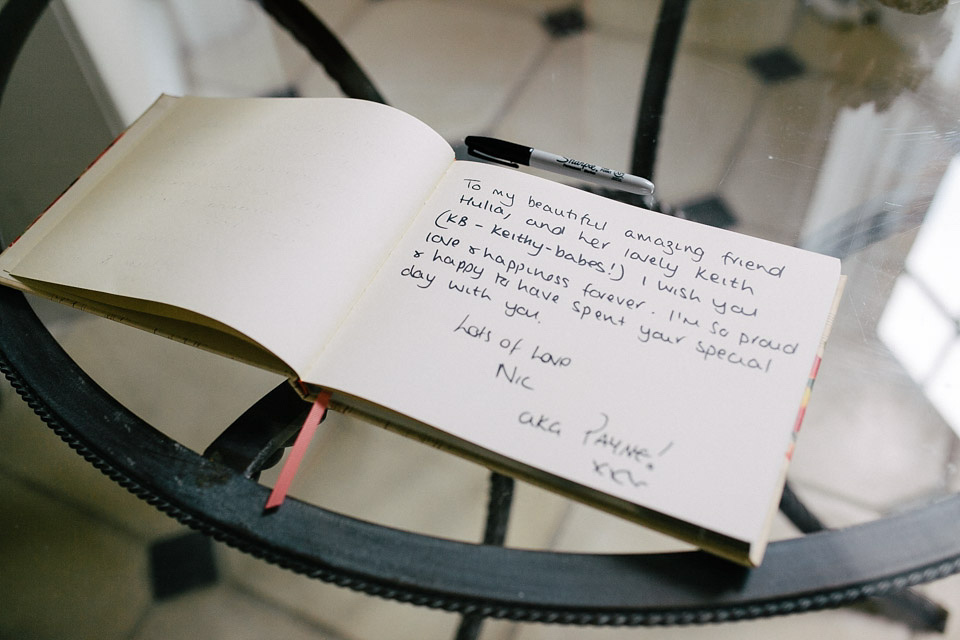 Sharpie
To my beautiful amazing friend
Hulia, and her lovely Keith
(KB - Keithy-babes!) I wish you
love & happiness forever. I'm so proud
& happy to have spent your special
day with you.
Lots of Love
Nic
aka PAYNE!
xxx